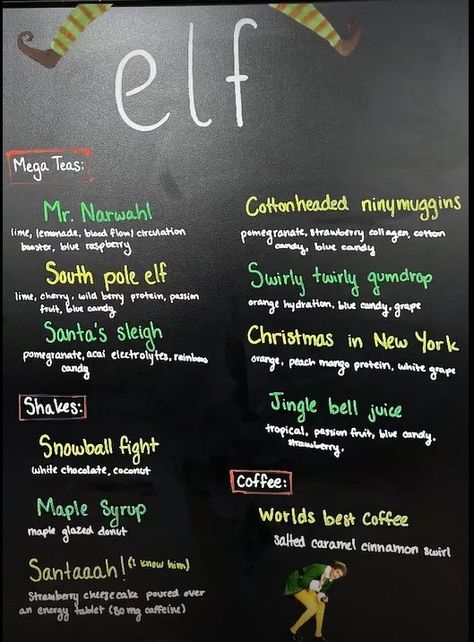 elf
Mega Teas:
Mr. Narwahl
lime, lemonade, blood flow/circulation
booster, blue raspberry
South pole elf
lime, cherry, wild berry protein, passion
fruit, blue candy
Santa's sleigh
pomegranate, acai electrolytes, rainbow
candy
Cottonheaded ninymuggins
pomegranate, strawberry collagen, cotton
candy, blue candy
Swirly twirly gumdrop
orange hydration, blue candy, grape
Christmas in New York
orange, peach mango protein, white grape
Jingle bell juice
tropical, passion fruit, blue candy,
strawberry,
Shakes:
Snowball fight
white chocolate, coconut
Maple Syrup
maple glazed donut
Santaaah! (I know him)
Strawberry cheesecake poured over
an energy tablet (80 mg caffeine)
Coffee:
Worlds best Coffee
salted caramel cinnamon swirl